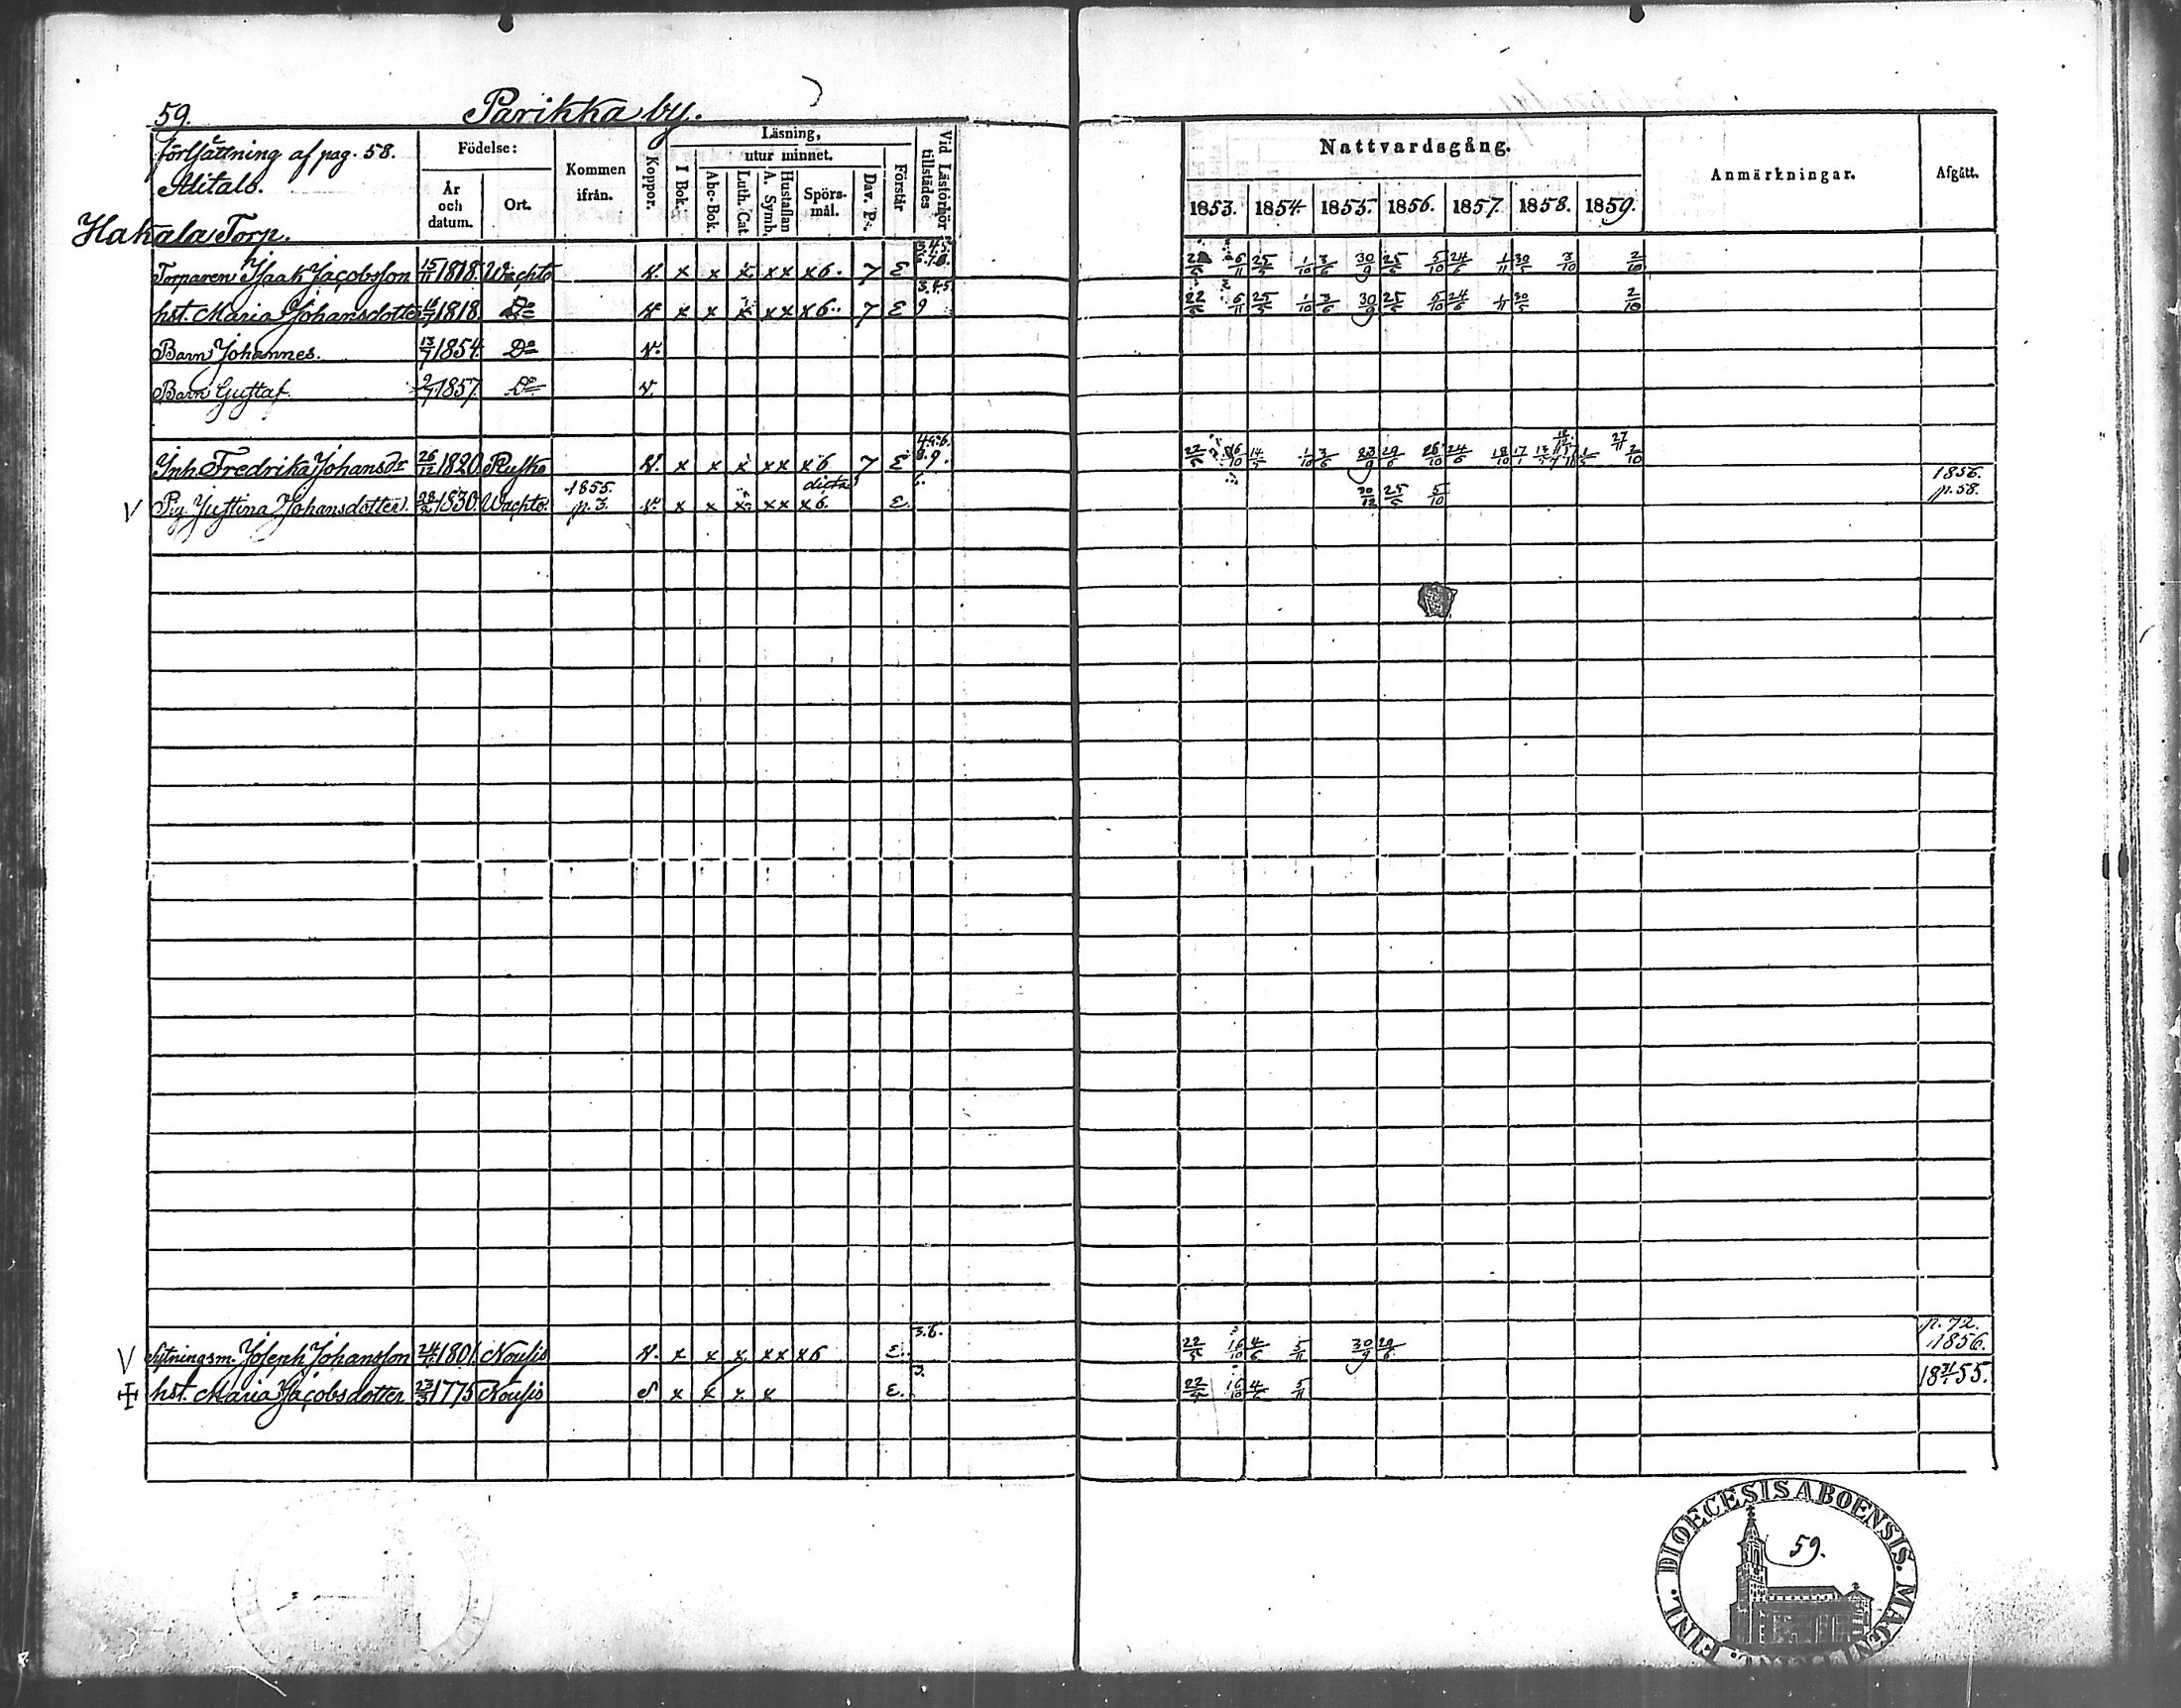 59. Parikka by.
förtsättning af pag. 58.
Alitalo.
Hakala Torp.
Födelse:
År och datum.
Ort.
Kommen ifrån.
Koppor.
Läsning,
I Bok.
utur minnet.
Abc-Bok.
Luth. Cat.
Hustaflan A. Symb.
Spörsmål.
Dav. Ps.
Förstår
Vid Läsförhör tillstädes
Nattvardsgång.
1853. 1854. 1855. 1856. 1857. 1858. 1859.
Anmärkningar.
Afgått.
Torparen Isaak Jacobsson 15/11 1818. Wachto v. x x x x x x 6. 7 E 25/5 1/10 3/6 30/9 25/5 5/10 24/6 1/11 30/5 3/10 2/10
hst. Maria Johansdotter 1818. Do v x x x x x x 6.. 7 E 9 22/5 6/11 25/5 1/10 3/6 30/9 25/5 5/10 24/6 1/11 30/5 2/10
Barn Johannes. 13/7 1854. Do v.
Barn Gustaf. 2/7 1857. Do v.
Inh. Fredrika Johansdr 26/12 1820. Rusko v. x x x x x x 6 7 E 9. 14/5 1/10 3/6 29/6 26/10 24/6 18/10 2/10
V Pig. Justina Johansdotter. 28/2 1830. Wachto. 1855. p. 3. v. x x x x x x 6. dicta E. 30/12 25/5 5/10 1856. p. 58.
V Sytningsm. Joseph Johansson 1801. Nousis v. x x x x x x 6 E.. 3.6. 22/5 16/10 4/6 5/11 30/9 29/6 p. 72. 1856.
hst. Maria Jacobsdotter 23/3 1775 Nousis x x x x E. 3. 22/5 16/10 4/6 5/11 1855.
DIOECESIS ABOENSIS. MAGNI FINL.
59.